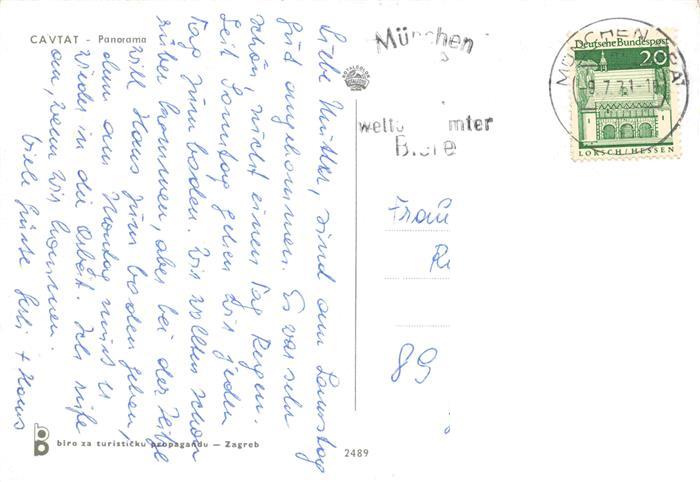 CAVTAT - Panorama
Liebe Mutter, sind am Samstag
gut angekommen. Es war sehr
schön, nicht einen Tag Regen.
Seit Sonntag gehen wir jeden
Tag zum baden. Wir wollten schon
rüber kommen, aber bei der Hitze
will Hans zum baden gehen,
denn am Montag muß er
wieder in die Arbeit. Ich rufe
an, wenn wir kommen.
Viele Grüße Gerli + Hans
biro za turističku propagandu — Zagreb
2489
München
Biere
MÜNCHEN
9.7.71-18
Deutsche Bundespost
20
LORSCH/HESSEN
Frau
R
89